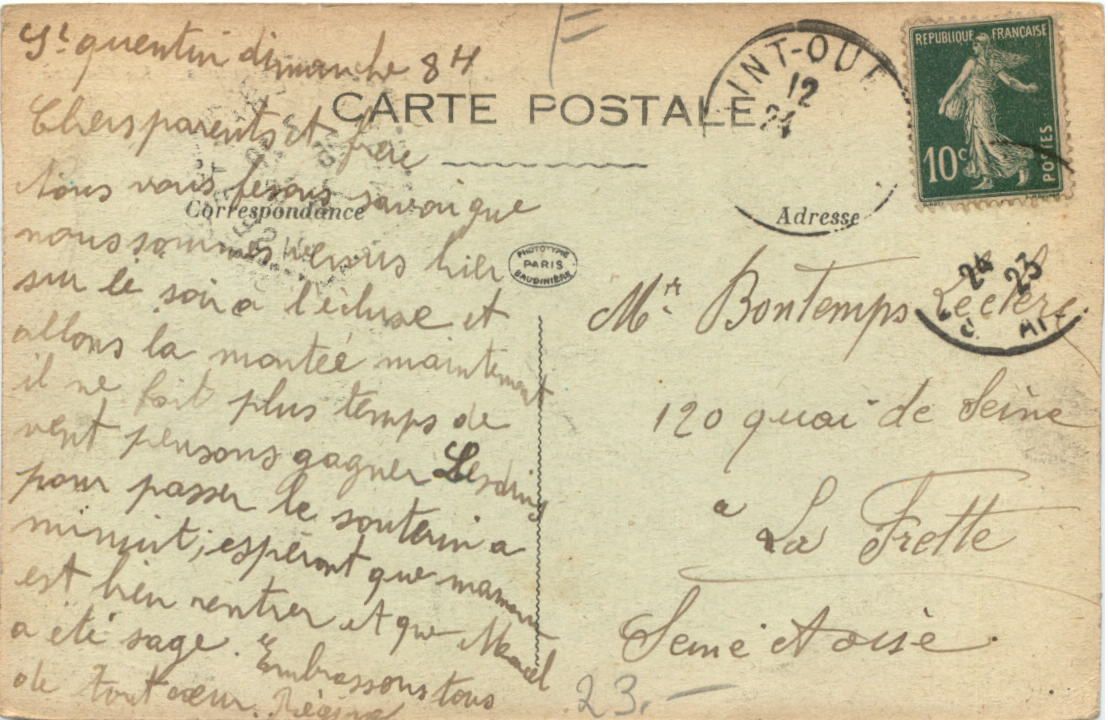 St quentin dimanche 8H
Chers parents et frère
nous vous fesons savoir que
nous sommes venus hier
sur le soir a l'écluse et
allons la montée maintement
il ne fait plus temps de
vent pensons gagner Lesdins
pour passer le souterin a
minuit, espéront que maman
est bien rentrer et que Marcel
a été sage. Embrassons tous
de tout cœur.
F
CARTE POSTALE
Correspondance
PHOTOTYPIE
PARIS
BAUDINIÈRE
INT-OUE
12
24
24 23
REPUBLIQUE FRANÇAISE
10c
POSTES
Adresse
Mr Bontemps Leclerc
120 quai de Seine
a La Frette
Seine et oise
23.-